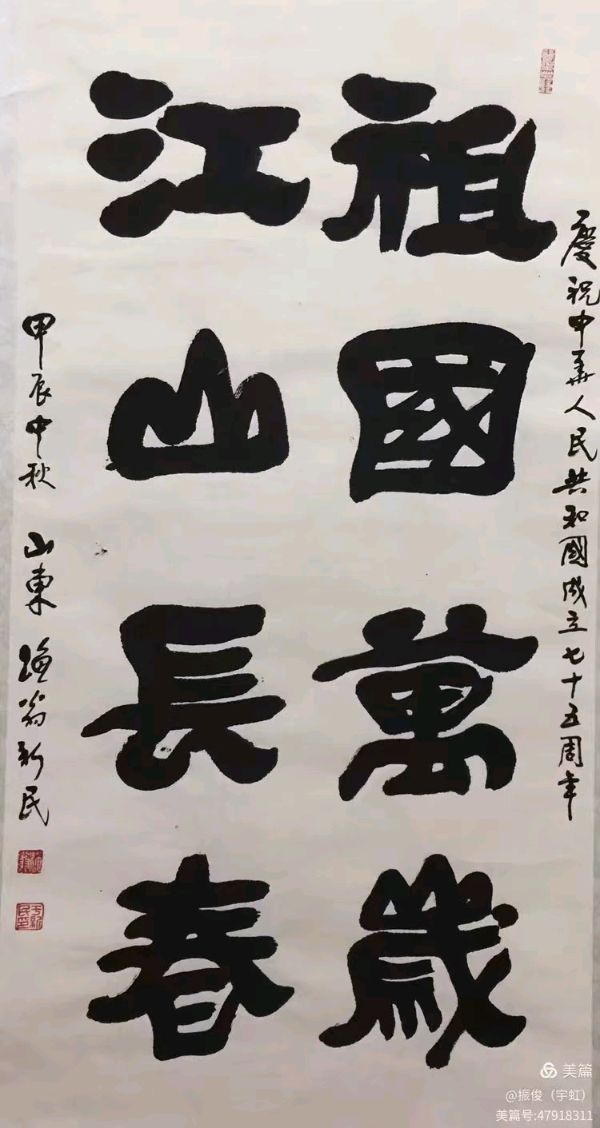 慶祝中華人民共和國成立七十五周年
祖國萬歲
江山長春
甲辰中秋 山東 翁新民
美篇
@振俊（宇虹）
美篇号:47918311